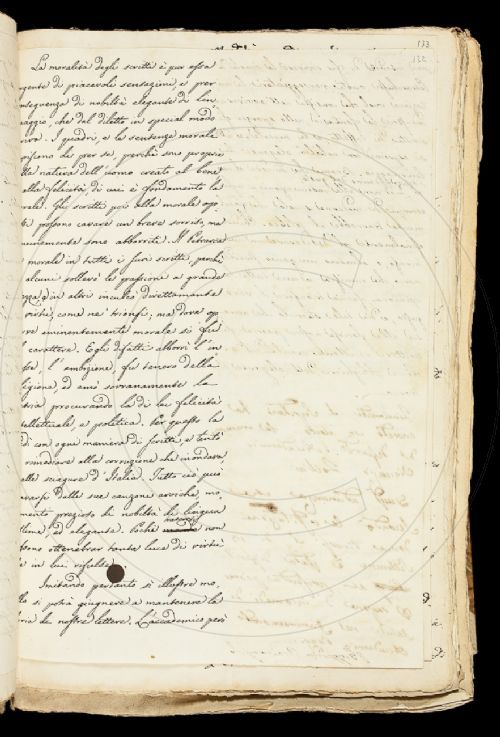 133
132
La moralità degli scritti è pur essa
gente di piacevole sensazioni, e per
nseguenza di nobiltà elegante di lin
aggio, che dal diletto in special modo
I quadri, e le sentenze morali
per se, perchè sono proprie
la natura dell'uomo creato al bene
ella felicità di cui è fondamento la
rale. Gli scritti poi alla morale op
possono cavare un breve sorriso, ma
sono abborriti. Il Petrarca
morale in tutti i suoi scritti, perchè
alcuni sollevò le passioni a grande
in altri inculcò direttamente
virtù, come ne' trionfi; ma dove op
re eminentemente morale si fu
l carattere. Egli difatti abborrì l'in
l'ambizione, fu tenero della
ligione, ed amò sovranamente la
tria procurando la di lei felicità
tellettuale, e politica. Per questo la
dì con ogni maniera di scritti, e tentò
rimediare alla corruzione che inondava
alle sciagure d'Italia. Tutto ciò può
varsi dalle sue canzoni eroiche, mo,
mento prezioso di nobiltà di lingua
ed eleganza. Poche non
ottenebrar tanta luce di virtù
in lui rifulse.
Imitando pertanto sì illustre mo,
lo si potrà giugnere a mantenere la
ria di nostre lettere. L'accademico però